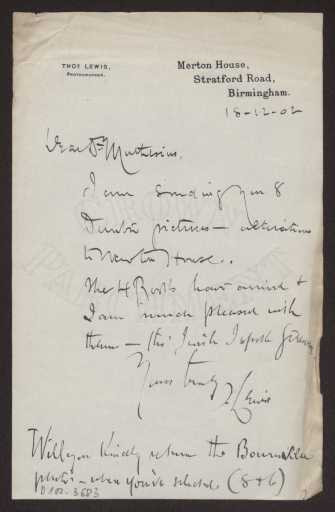 THOS LEWIS,
PHOTOGRAPHER.
Merton House,
Stratford Road,
Birmingham.
18-12-02
Dear Dr Muthesius.
I am sending you 8
pictures — alterations
to House..
The 4 Books have arrived &
I am much pleased with
them — tho' I wish I spoke German
Yours truly
T Lewis
Will you kindly return the Bournville
photos — when you've selected (8 & 6)
D 102-3683